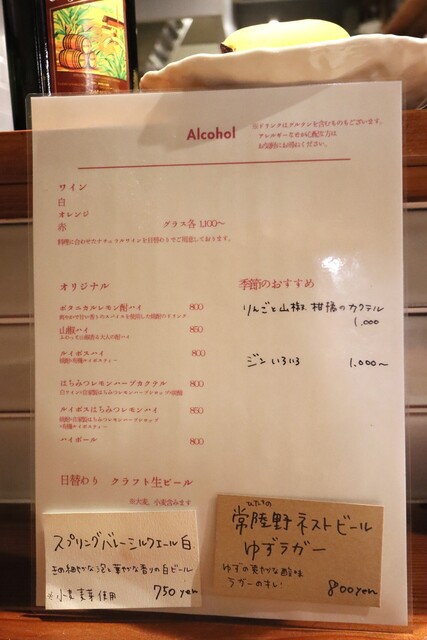 Alcohol
※ドリンクはグルテンを含むものもございます。
アレルギーなど心配な方は
お気軽にお尋ねください。
ワイン
白
オレンジ
赤
グラス各 1,100〜
料理に合わせたナチュラルワインを日替わりでご用意しております。
オリジナル
ボタニカルレモン酎ハイ 800
山椒ハイ 850
ルイボスハイ 800
はちみつレモンハーブカクテル 800
ルイボスはちみつレモンハイ 850
ハイボール 800
季節のおすすめ
りんごと山椒 柑橘のカクテル
1,000
ジン いろいろ 1,000〜
日替わり クラフト生ビール
※大麦、小麦含みます
スプリングバレーシルクエール 白
きめ細やかな泡と華やかな香りの白ビール
※小麦麦芽使用 750yen
ひたちの
常陸野ネストビール
ゆずラガー
ゆずの爽やかな酸味
ラガーのキレ 800yen